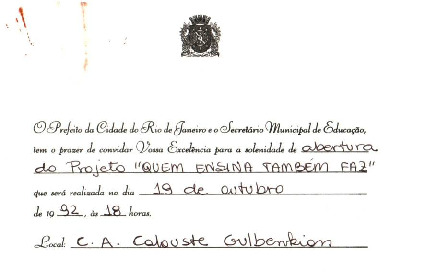 O Prefeito da Cidade do Rio de Janeiro e o Secretário Municipal de Educação,
tem o prazer de convidar Vossa Excelência para a solenidade de abertura
do Projeto "QUEM ENSINA TAMBÉM FAZ"
que será realizada no dia 19 de outubro
de 1992, às 18 horas.
Local: C. A. Calouste Gulbenkian